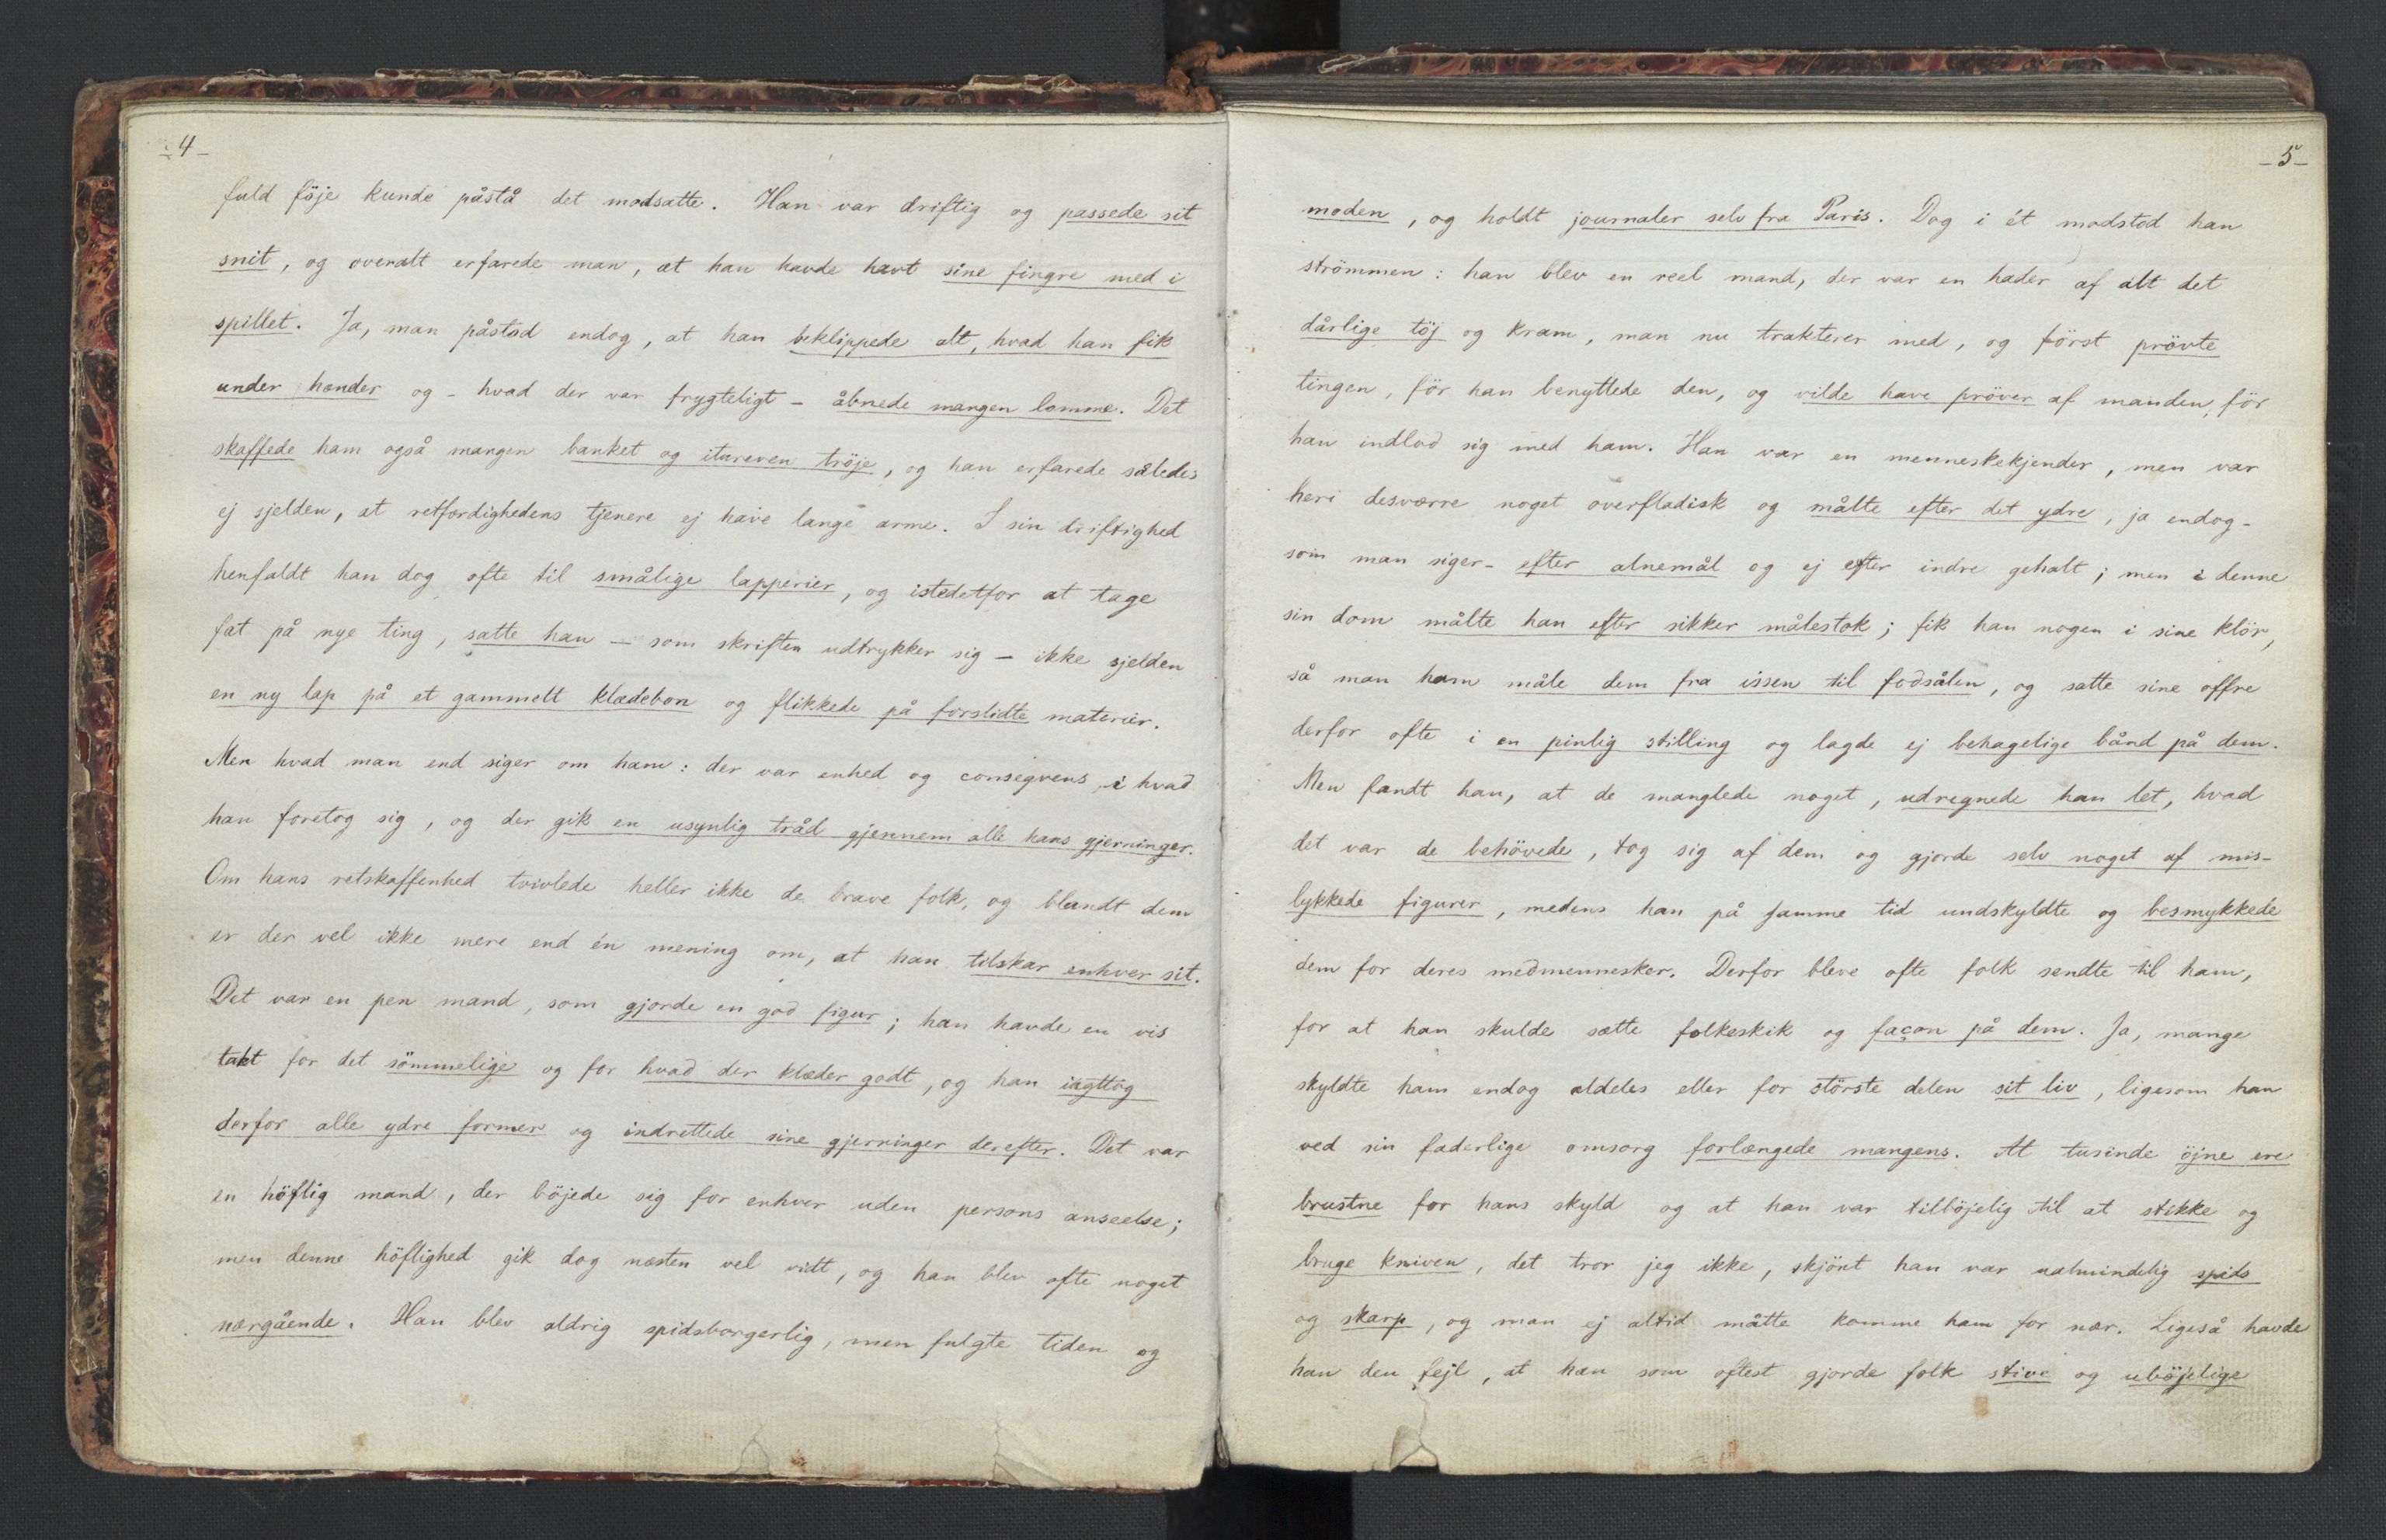 -4-
fuld föje kunde påstå det modsatte. Han var driftig og passede sit
snit, og overalt erfarede man, at han havde havt sine fingre med i
spillet. Ja, man påstod endog, at han beklippede alt, hvad han fik
under hænder og - hvad der var frygteligt - åbnede mangen lomme. Det
skaffede ham også mangen banket og itureven tröje, og han erfarede således
ej sjelden, at retfærdighedens tjenere ej have lange arme. I sin driftighed
henfaldt han dog ofte til smålige lapperier, og istedetfor at tage
fat på nye ting, satte han - som skriften udtrykker sig - ikke sjelden
en ny lap på et gammelt klædebon og flikkede på forslidte materier.
Men hvad man end siger om ham: der var enhed og conseqvens, i hvad
han foretog sig, og der gik en usynlig tråd gjennem alle hans gjerninger.
Om hans retskaffenhed tvivlede heller ikke de brave folk, og blandt dem
er der vel ikke mere end én mening om, at han tilskar enhver sit.
Det var en pen mand, som gjorde en god figur; han havde en vis
takt for det sömmelige og for hvad der klæder godt, og han iagttog
derfor alle ydre former og indrettede sine gjerninger derefter. Det var
en höflig mand, der böjede sig for enhver uden persons anseelse;
men denne höflighed gik dog næsten vel vidt, og han blev ofte noget
nærgående. Han blev aldrig spidsborgerlig, men fulgte tiden og
-5-
moden, og holdt journaler selv fra Paris. Dog i ét modstod han
strömmen: han blev en reel mand, der var en hader af alt det
dårlige töj og kram, man nu trakterer med, og först prövte
tingen, för han benyttede den, og vilde have pröver af manden, för
han indlod sig med ham. Han var en menneskekjender, men var
heri desværre noget overfladisk og målte efter det ydre, ja endog-
som man siger- efter alnemål og ej efter indre gehalt; men i denne
sin dom målte han efter sikker målestok; fik han nogen i sine klör,
så man ham måle dem fra issen til fodsålen, og satte sine offre
derfor ofte i en pinlig stilling og lagde ej behagelige bånd på dem.
Men fandt han, at de manglede noget, udregnede han let, hvad
det var de behövede, tog sig af dem og gjorde selv noget af mis-
lykkede figurer, medens han på samme tid undskyldte og besmykkede
dem for deres medmennesker. Derfor bleve ofte folk sendte til ham,
for at han skulde sætte folkeskik og façon på dem. Ja, mange
skyldte ham endog aldeles eller for störste delen sit liv, ligesom han
ved sin faderlige omsorg forlængede mangens. At tusinde öjne ere
brustne for hans skyld og at han var tilböjelig til at stikke og
bruge kniven, det tror jeg ikke, skjönt han var ualmindelig spids
og skarp, og man ej altid måtte komme ham for nær. Ligeså havde
han den fejl, at han som oftest gjorde folk stive og uböjelige